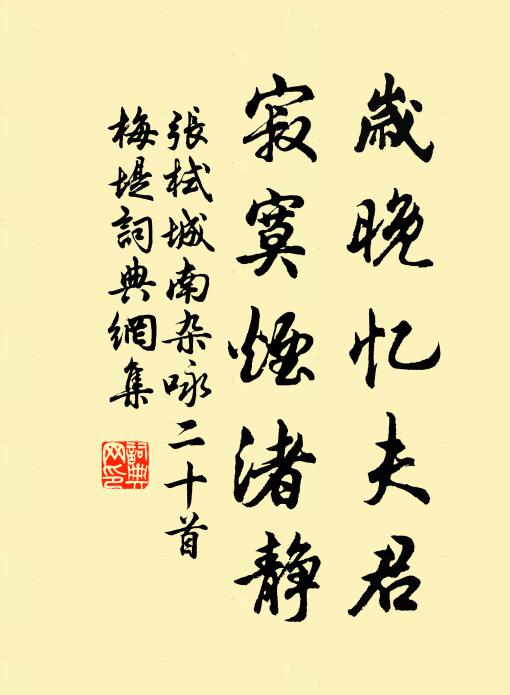 岁晚忆夫君
寂寞煙渚静
張栻城南杂咏二十首
梅堤詞典網集
詞典網印